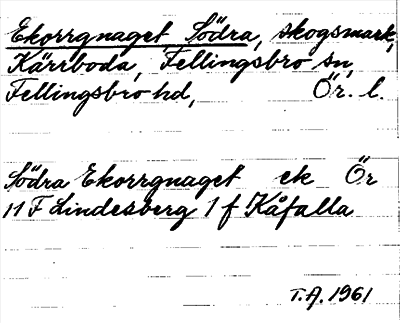 Ekorrgnaget, Södra, skogsmark,
Kärrboda, Fellingsbro sn,
Fellingsbro hd, Ör. l.
Södra Ekorrgnaget ek Ör
11 F Lindesberg 1 f Kåfalla
T.A. 1961